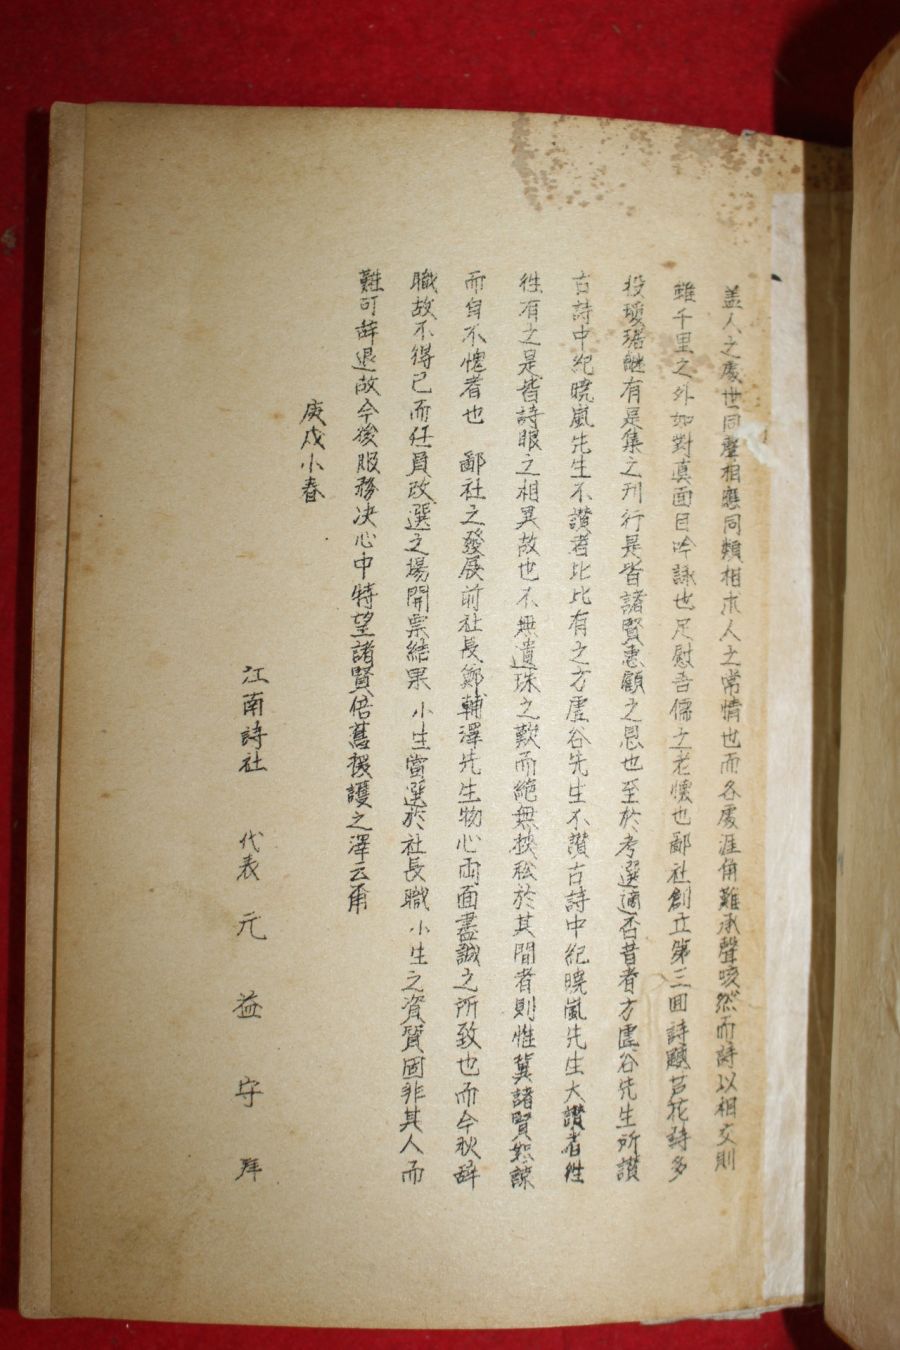 盖人之處世同聲相應同類相求人之常情也而各處涯角難承聲咳然而詩以相交則
雖千里之外如對真面目吟詠也足慰吾儒之老懷也鄙社創立第三囬詩題芦花詩多
投瓊琚醚有是集之刊行是皆諸賢惠顧之恩也至於考選適否昔者方虛谷先生所讃
古詩中紀曉嵐先生不讃者比比有之方虛谷先生不讃古詩中紀曉嵐先生大讃者徃
徃有之是皆詩眼之相異故也不無遺珠之歎而絶無挾私於其間者則惟冀諸賢恕諒
而自不愧者也 鄙社之發展前社長鄭輔澤先生物心両面盡誠之所致也而今秋辞
職故不得已而任員改選之場開票結果 小生當選於社長職 小生之資質固非其人而
難可辞退故今後服務决心中特望諸賢倍舊援護之澤云甬
庚戌小春
江南詩社 代表 元 益 守 拜